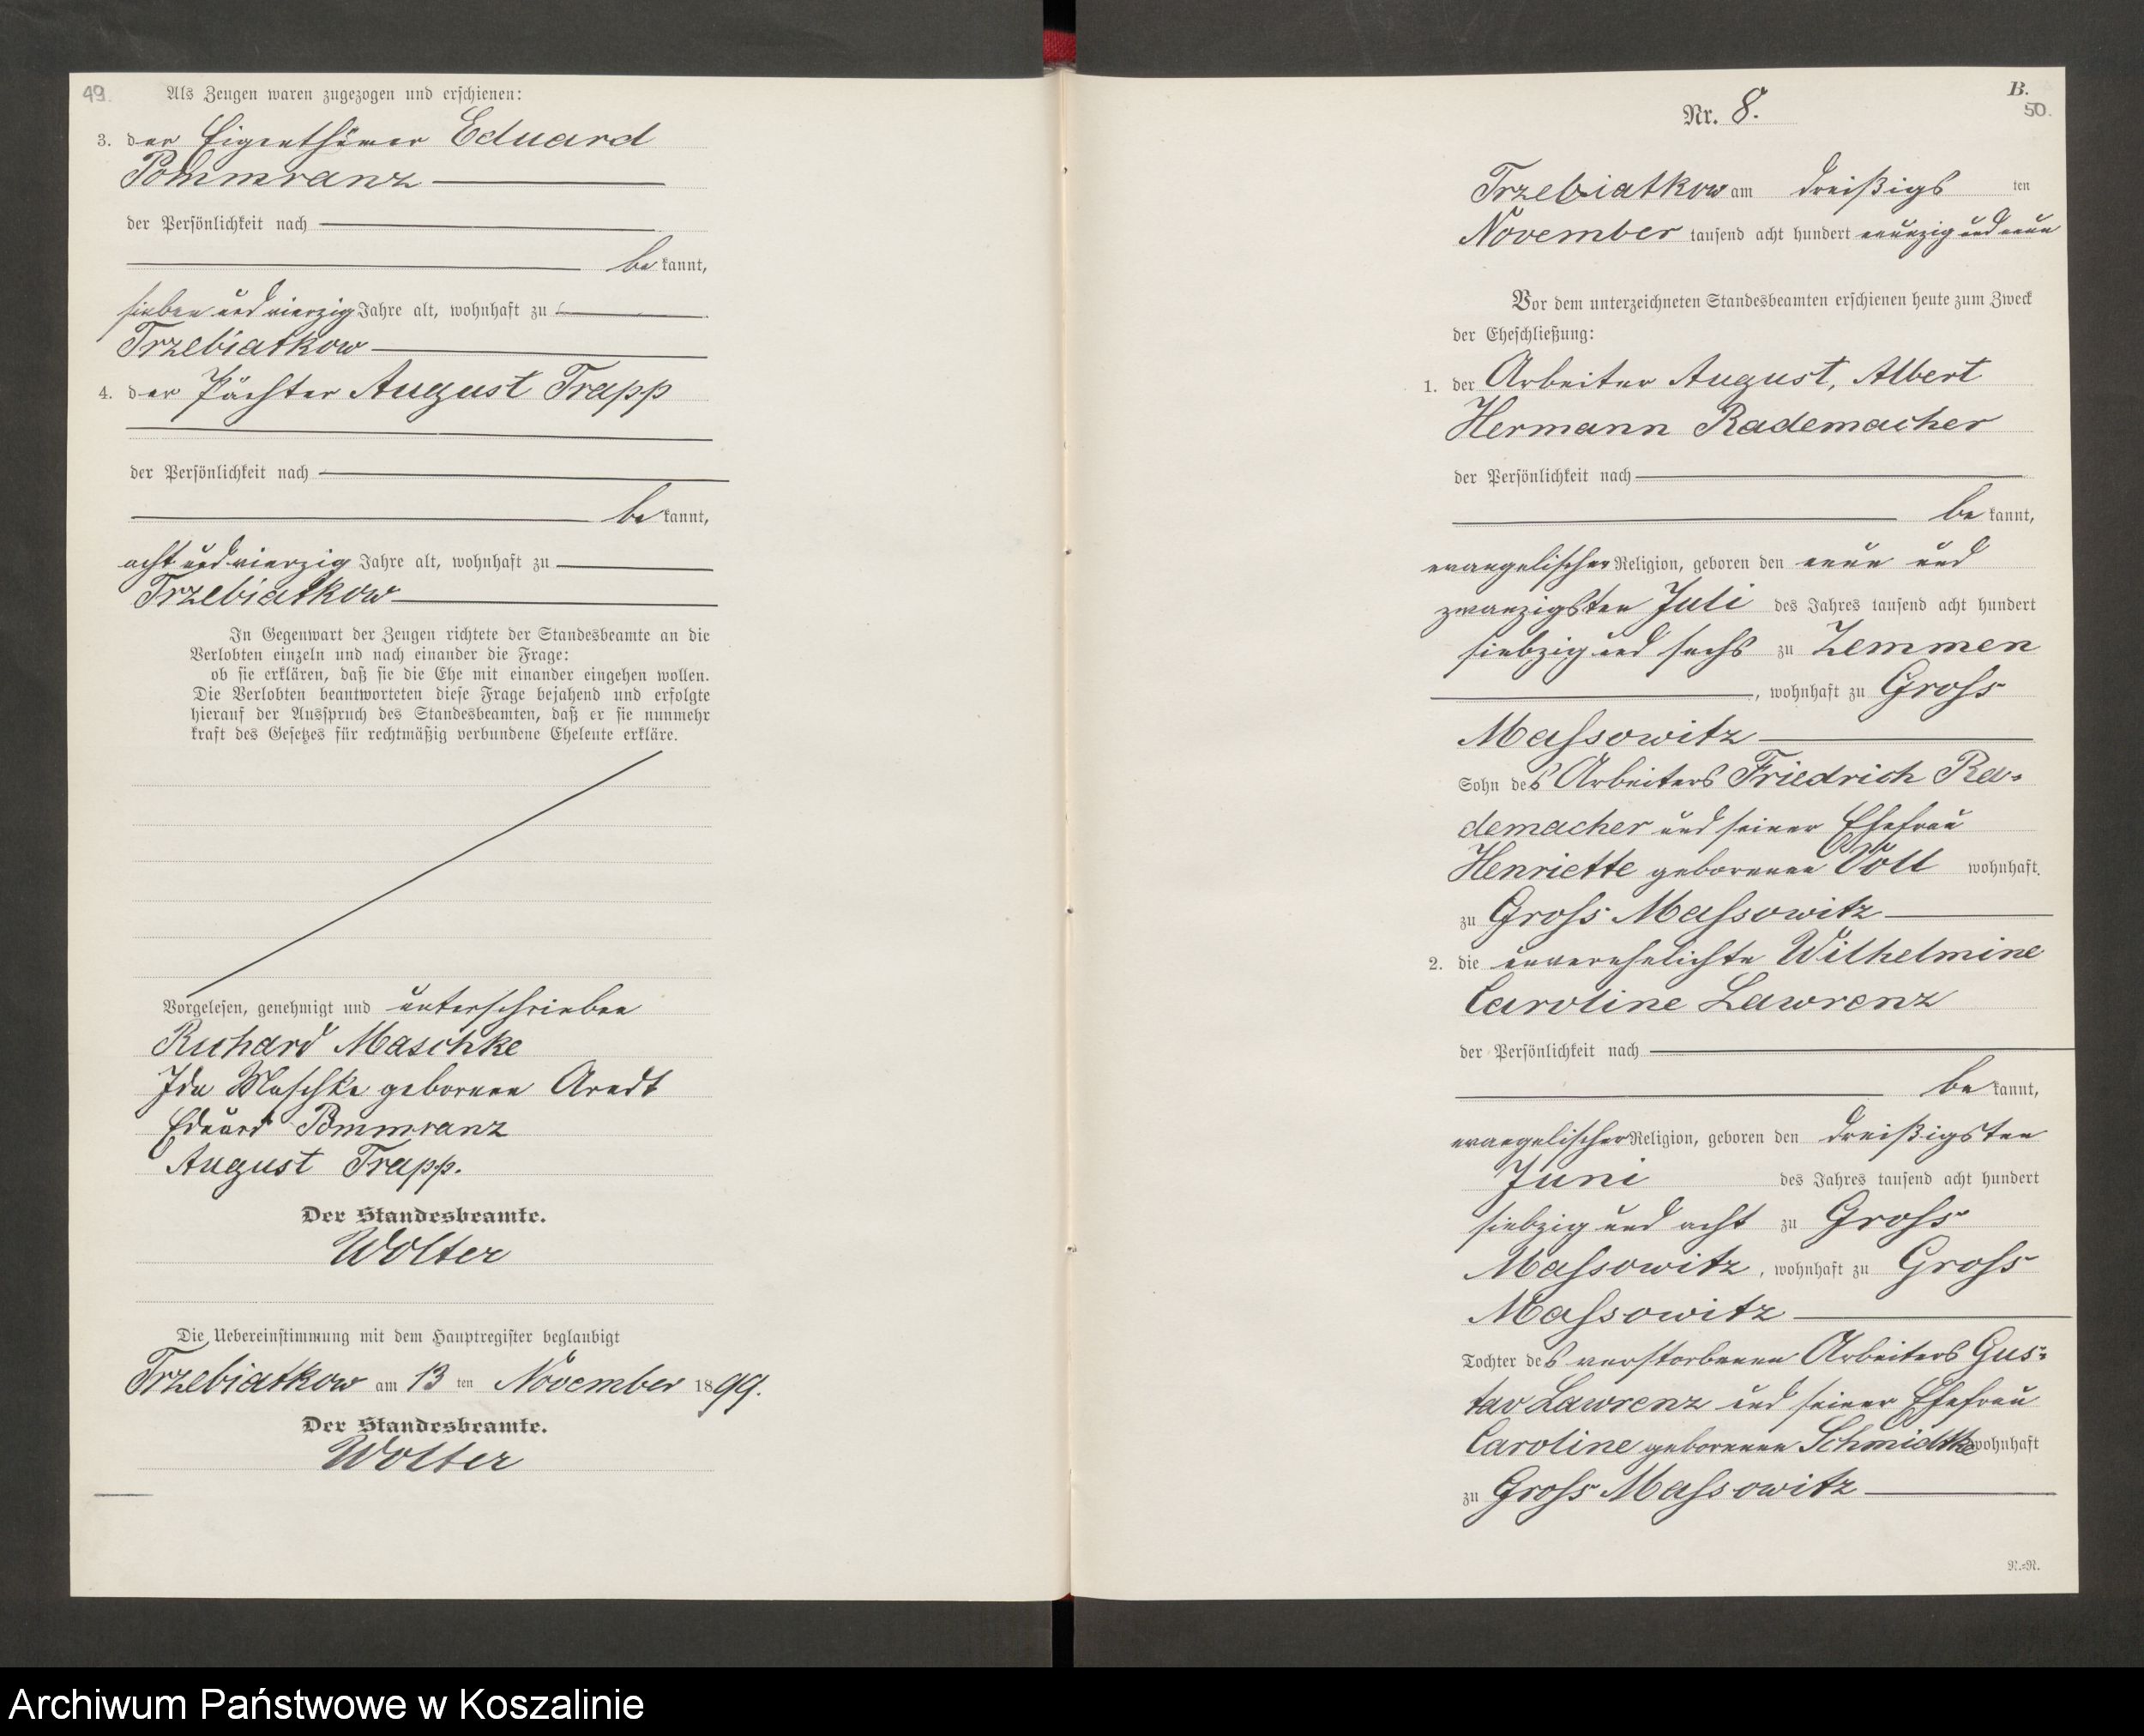 49.
Als Zeugen waren zugezogen und erschienen:
3. der Eigenthümer Eduard
Pommranz
der Persönlichkeit nach
be kannt,
sieben und vierzig Jahre alt, wohnhaft zu
Trzebiatkow
4. der Pächter August Trapp
der Persönlichkeit nach
be kannt,
acht und vierzig Jahre alt, wohnhaft zu
Trzebiatkow
In Gegenwart der Zeugen richtete der Standesbeamte an die
Verlobten einzeln und nach einander die Frage:
ob sie erklären, daß sie die Ehe mit einander eingehen wollen.
Die Verlobten beantworteten diese Frage bejahend und erfolgte
hierauf der Ausspruch des Standesbeamten, daß er sie nunmehr
kraft des Gesetzes für rechtmäßig verbundene Eheleute erkläre.
Vorgelesen, genehmigt und unterschrieben
Richard Maschke
Ida Maschke geborene Arndt
Eduard Pommranz
August Trapp.
Der Standesbeamte.
Wolter
Die Uebereinstimmung mit dem Hauptregister beglaubigt
Trzebiatkow am 13 ten November 1899.
Der Standesbeamte.
Wolter
B.
50.
Nr. 8.
Trzebiatkow am dreißigs ten
November tausend acht hundert neunzig und neun
Vor dem unterzeichneten Standesbeamten erschienen heute zum Zweck
der Eheschließung:
1. der Arbeiter August, Albert
Hermann Rademacher
der Persönlichkeit nach
be kannt,
evangelischer Religion, geboren den neun und
zwanzigsten Juli des Jahres tausend acht hundert
siebzig und sechs zu Zemmen
, wohnhaft zu Gross
Massowitz
Sohn des Arbeiters Friedrich Ra-
demacher und seiner Ehefrau
Henriette geborenen Voll wohnhaft
zu Gross Massowitz
2. die unverehelichte Wilhelmine
Caroline Lawrenz
der Persönlichkeit nach
be kannt,
evangelischer Religion, geboren den dreißigsten
Juni des Jahres tausend acht hundert
siebzig und acht zu Gross
Massowitz, wohnhaft zu Gross
Massowitz
Tochter des verstorbenen Arbeiters Gus-
tav Lawrenz und seiner Ehefrau
Caroline geborenen Schmidtke wohnhaft
zu Gross Massowitz
N.-R.
Archiwum Państwowe w Koszalinie